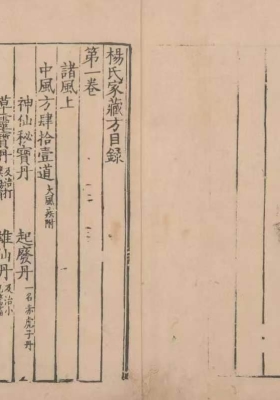 楊氏家藏方目錄
第一卷
諸風上
中風方肆拾壹道 大風疾附
神仙秘寶丹 起廢丹 一名赤虎子丹
靈寶丹 雄仙丹 及治小